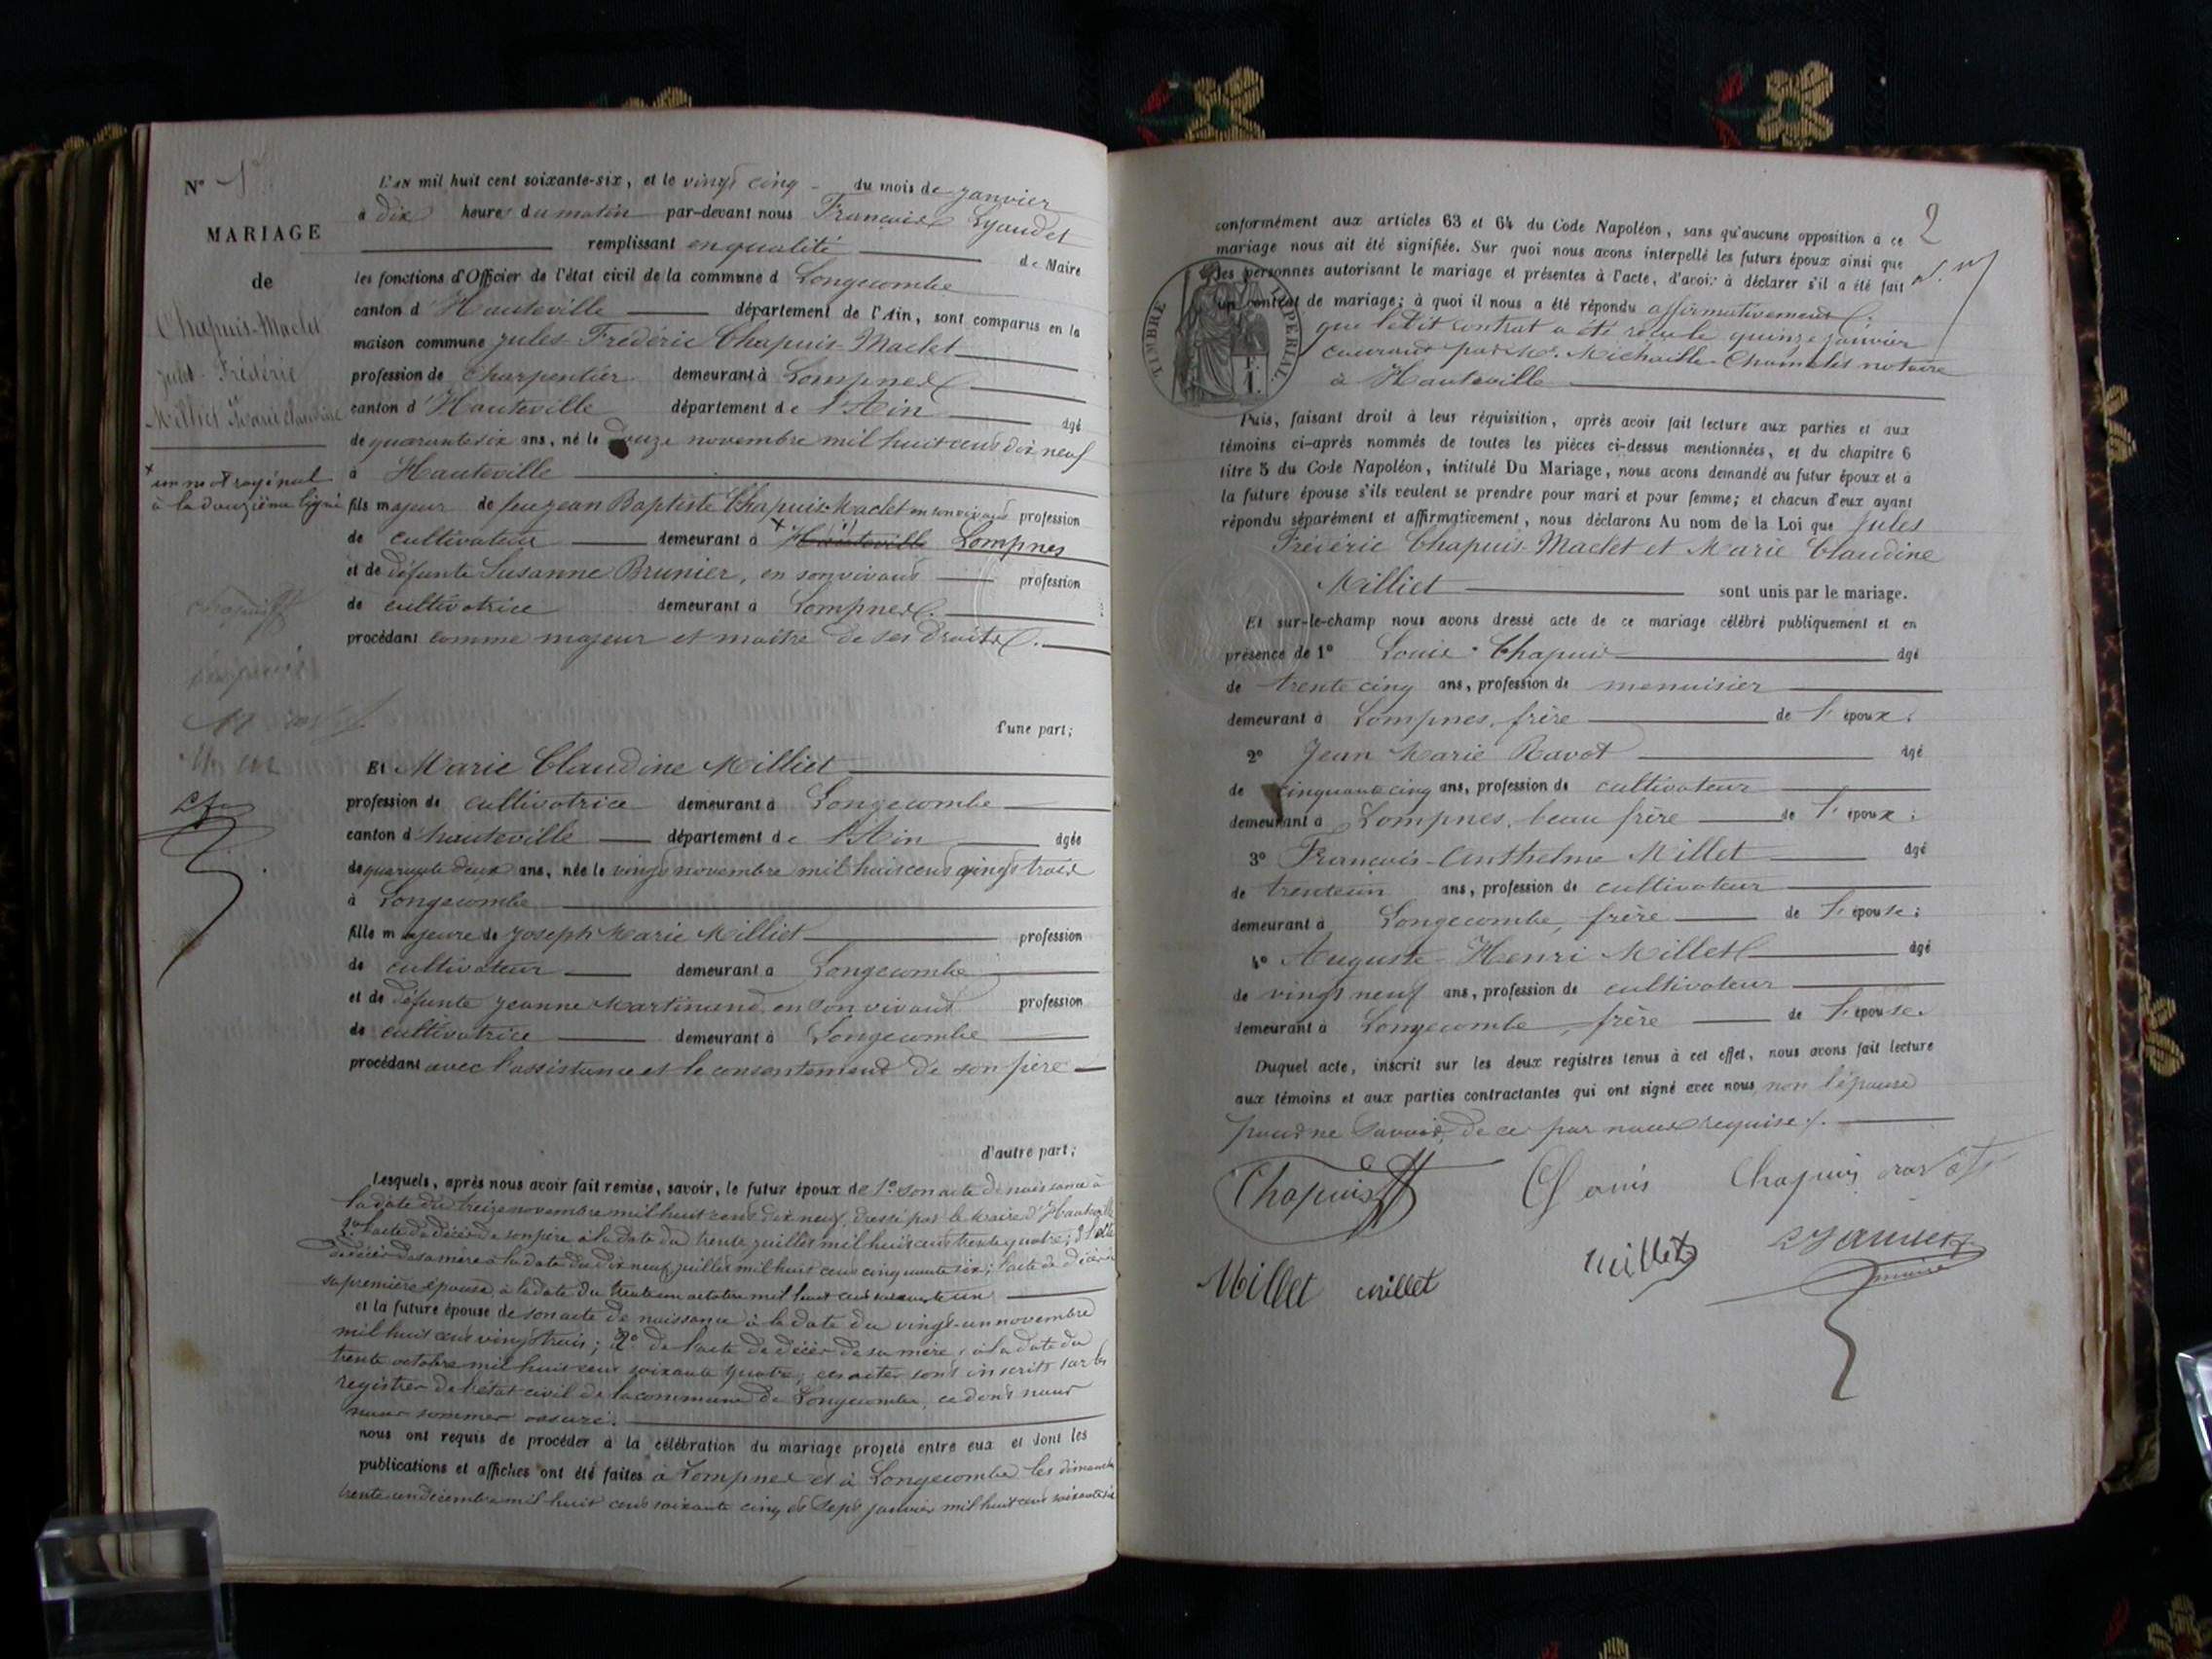 N° 1
MARIAGE
de
Chapuis-Maclet
Jules-Frédéric
Milliet Marie Claudine
x
un mot rayé nul
à la douzième ligne
L'AN mil huit cent soixante-six, et le vingt cinq du mois de janvier
à dix heures du matin par-devant nous François Lyaudet
remplissant en qualité de Maire
les fonctions d'Officier de l'état civil de la commune d Longecombe
canton d'Hauteville département de l'Ain, sont comparus en la
maison commune Jules-Frédéric Chapuis-Maclet
profession de charpentier demeurant à Lompnes
canton d'Hauteville département de l'Ain âgé
de quarante six ans, né le douze novembre mil huit cent dix neuf
à Hauteville
fils majeur de feu Jean Baptiste Chapuis-Maclet en son vivant profession
de cultivateur demeurant à x Hauteville Lompnes
et de défunte Susanne Brunier, en son vivant profession
de cultivatrice demeurant à Lompnes.
procédant comme majeur et maître de ses droits.
d'une part;
Et Marie Claudine Milliet
profession de cultivatrice demeurant à Longecombe
canton d'hauteville département de l'Ain âgée
de quarante deux ans, née le vingt novembre mil huit cent vingt trois
à Longecombe
fille majeure de Joseph Marie Milliet profession
de cultivateur demeurant à Longecombe
et de défunte Jeanne Martinand, en son vivant profession
de cultivatrice demeurant à Longecombe
procédant avec l'assistance et le consentement de son père
d'autre part;
Lesquels, après nous avoir fait remise, savoir, le futur époux de 1° son acte de naissance à
la date du treize novembre mil huit cent dix neuf, dressé par le Maire d'Hauteville
2° l'acte de décès de son père à la date du trente juillet mil huit cent trente quatre; 3°
de décès de sa mère à la date du dix neuf juillet mil huit cent cinquante six; l'acte de décès de
sa première épouse à la date du trente un octobre mil huit cent soixante un
et la future épouse de son acte de naissance à la date du vingt-un novembre
mil huit cent vingt trois; 2° de l'acte de décès de sa mère, à la date du
trente octobre mil huit cent soixante quatre, ces actes sont inscrits sur les
registres de l'état civil de la commune de Longecombe, ce dont nous
nous sommes assuré.
nous ont requis de procéder à la célébration du mariage projeté entre eux et dont les
publications et affiches ont été faites à Lompnes et à Longecombe les dimanches
trente un décembre mil huit cent soixante cinq et sept janvier mil huit cent soixante six
2
conformément aux articles 63 et 64 du Code Napoléon, sans qu'aucune opposition à ce
mariage nous ait été signifiée. Sur quoi nous avons interpellé les futurs époux ainsi que
les personnes autorisant le mariage et présentes à l'acte, d'avoir à déclarer s'il a été fait
un contrat de mariage; à quoi il nous a été répondu affirmativement
que ledit contrat a été reçu le quinze janvier
courant par Me. Michaille-Chomelis notaire
à Hauteville
TIMBRE IMPERIAL
Puis, faisant droit à leur réquisition, après avoir fait lecture aux parties et aux
témoins ci-après nommés de toutes les pièces ci-dessus mentionnées, et du chapitre 6
titre 5 du Code Napoléon, intitulé Du Mariage, nous avons demandé au futur époux et à
la future épouse s'ils veulent se prendre pour mari et pour femme; et chacun d'eux ayant
répondu séparément et affirmativement, nous déclarons Au nom de la Loi que Jules
Frédéric Chapuis-Maclet et Marie Claudine
Milliet sont unis par le mariage.
Et sur-le-champ nous avons dressé acte de ce mariage célébré publiquement et en
présence de 1° Louis Chapuis âgé
de trente cinq ans, profession de menuisier
demeurant à Lompnes, frère de l'époux;
2° Jean Marie Ravot âgé
de cinquante cinq ans, profession de cultivateur
demeurant à Lompnes, beau frère de l'époux;
3° François-Anthelme Millet âgé
de trente un ans, profession de cultivateur
demeurant à Longecombe, frère de l'épouse;
4° Auguste Henri Millet âgé
de vingt neuf ans, profession de cultivateur
demeurant à Longecombe, frère de l'épouse.
Duquel acte, inscrit sur les deux registres tenus à cet effet, nous avons fait lecture
aux témoins et aux parties contractantes qui ont signé avec nous, non l'épouse
pour ne savoir, de ce par nous requise.
Chapuis Louis Chapuis ravot
Millet millet millet Lyaudet
maire